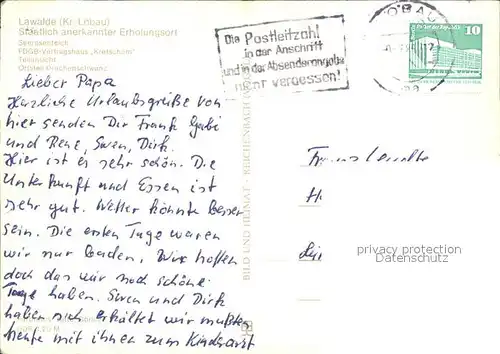 Lawalde (Kr. Löbau)
Staatlich anerkannter Erholungsort
FDGB-Vertragshaus „Kretscham"
Teilansicht
Ortsteil Kleindehsa
Lieber Papa
Herzliche Urlaubsgrüße von
hier senden Dir Frank Gabi
und Rene, Swen, Dirk.
Hier ist es sehr schön. Die
Unterkunft und Essen ist
sehr gut. Wetter könnte besser
sein. Die ersten Tage waren
wir nur baden. Wir hoffen
doch das wir noch schöne
Tage haben. Swen und Dirk
haben sich erkältet wir mußten
heute mit ihnen zum Kinderarzt
BILD UND HEIMAT · REICHENBACH
Die Postleitzahl
in der Anschrift
und in der Absenderangabe
nicht vergessen!
LÖBAU
10
privacy protection